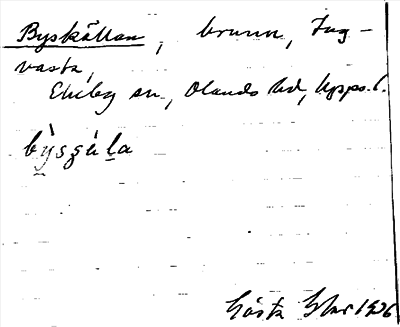 Byskällan, brunn, Ing-
vasta,
Ekeby sn, Olands hd, Upps. l.
býszèla
Gösta 1926